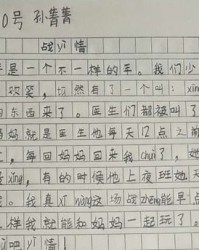 0号 孙菁菁
战yì情
是一个不一样的年。我们少
欢笑，突然有了一个叫：xīn
的东西来了。医生们都被叫了
妈就是医生他每天12点之前
，每回妈妈回来我chuī了，她
xǐng，有的时候他上夜班她天
。我真xī wàng这场战zhēng能早点
样我就能和妈妈一起玩了。
们吧yì情！